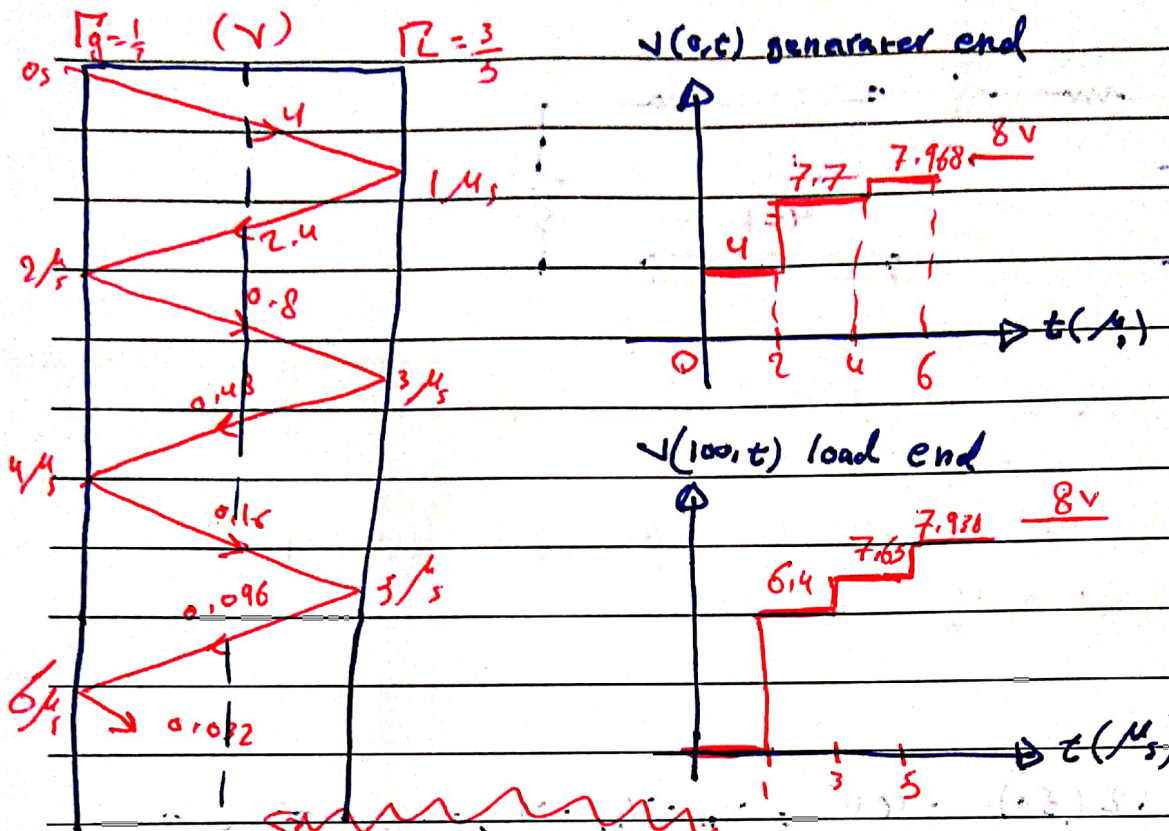 Γg = 1/3 (V) ΓL = 3/5
0s
4
1 μs
2.4
2 μs
0.8
3 μs
0.48
4 μs
0.16
5 μs
0.096
6 μs
0.032
V(0,t) genarater end
8 V
7.968
7.7
4
0 2 4 6 t(μs)
V(100,t) load end
8 V
7.938
7.65
6.4
1 3 5 t(μs)